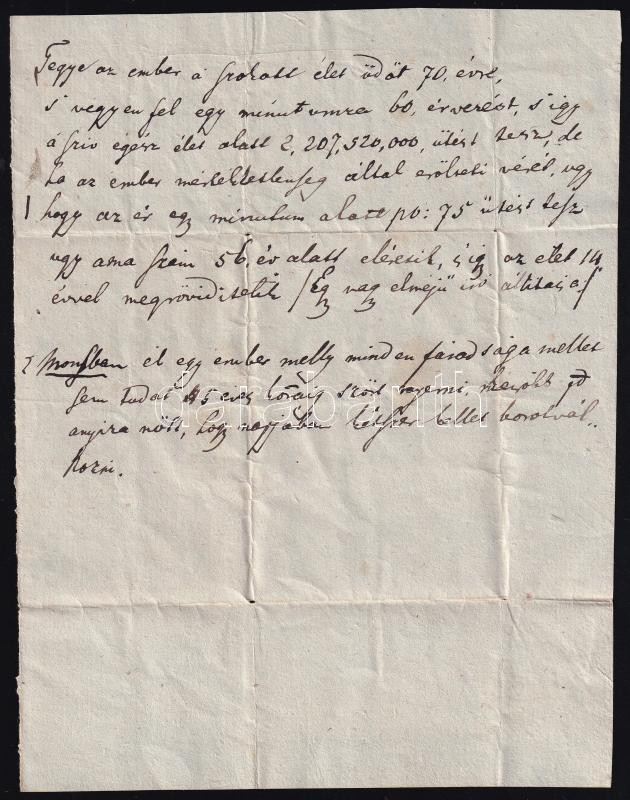 Tegye az ember á szokott élet üdőt 70, évre,
s' vegyen fel egy minutumra 60, érverést, s' igy
á sziv egész élet alatt 2,207,520,000, ütést tesz, de
ha az ember mértékletlenség által erőlteti vérét, ugy
hogy az ér egy minutum alatt po: 75 ütést tesz
ugy ama szám 56, év alatt elésetik, s' igy az élet 14
évvel megrövidítetik / Egy nagy elméjű iró állitása /
Monsban él egy ember melly minden fáradsága mellet
sem tudot 45 éves koráig szőrt nyerni,
anyira nőtt, hogy napjában kétszer kellet borotvál-
kozni.